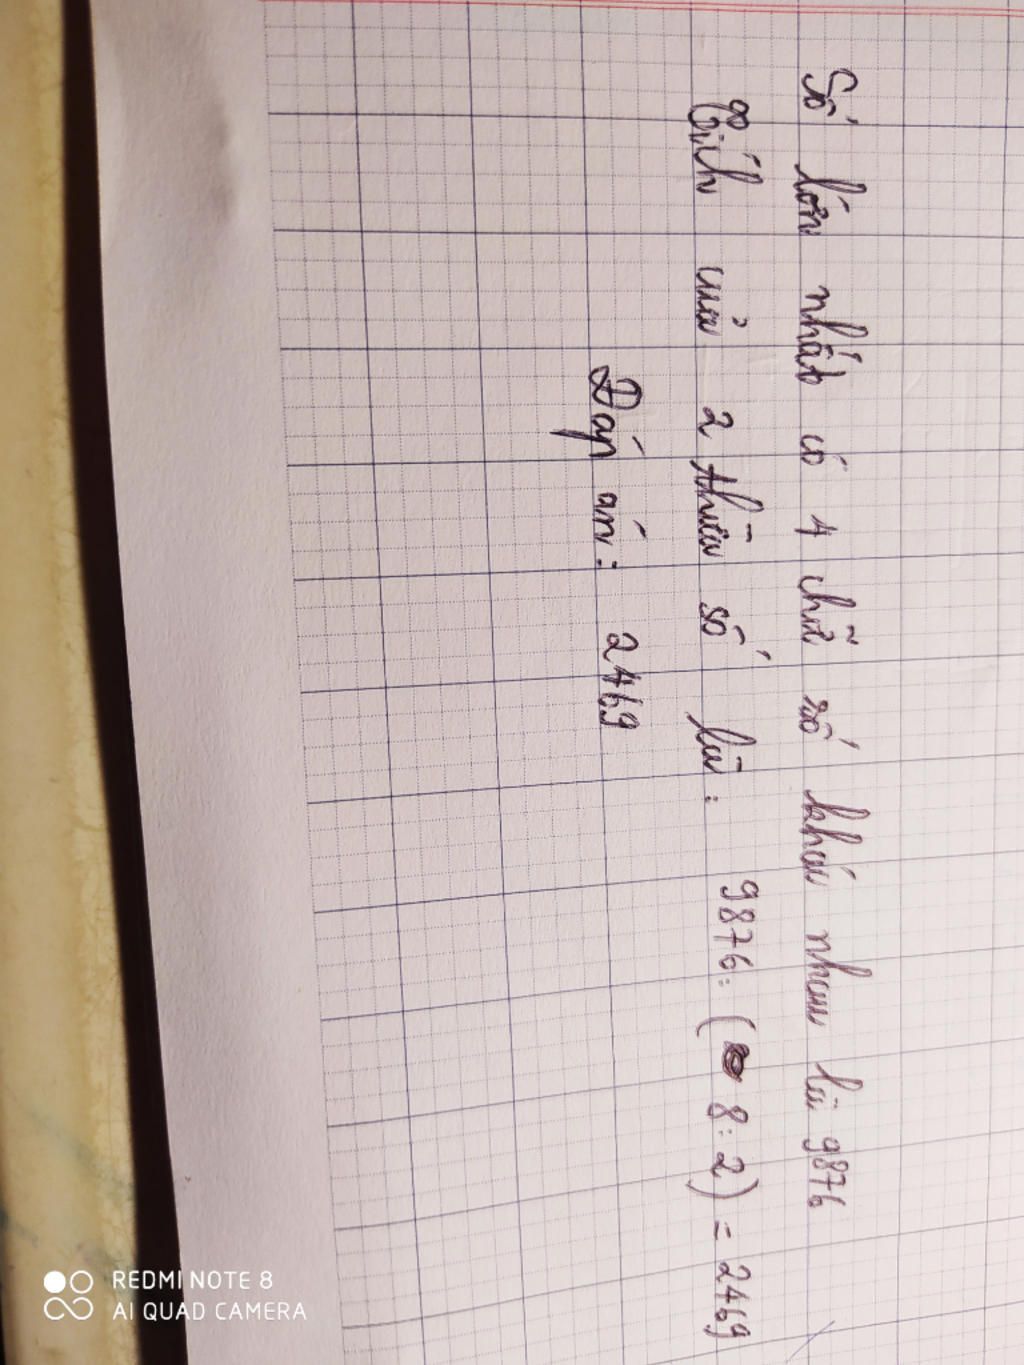 Số lớn nhất có 4 chữ số khác nhau là 9876
Tích của 2 thừa số là: 9876: (8:2) = 2469
Đáp án: 2469
REDMI NOTE 8
AI QUAD CAMERA